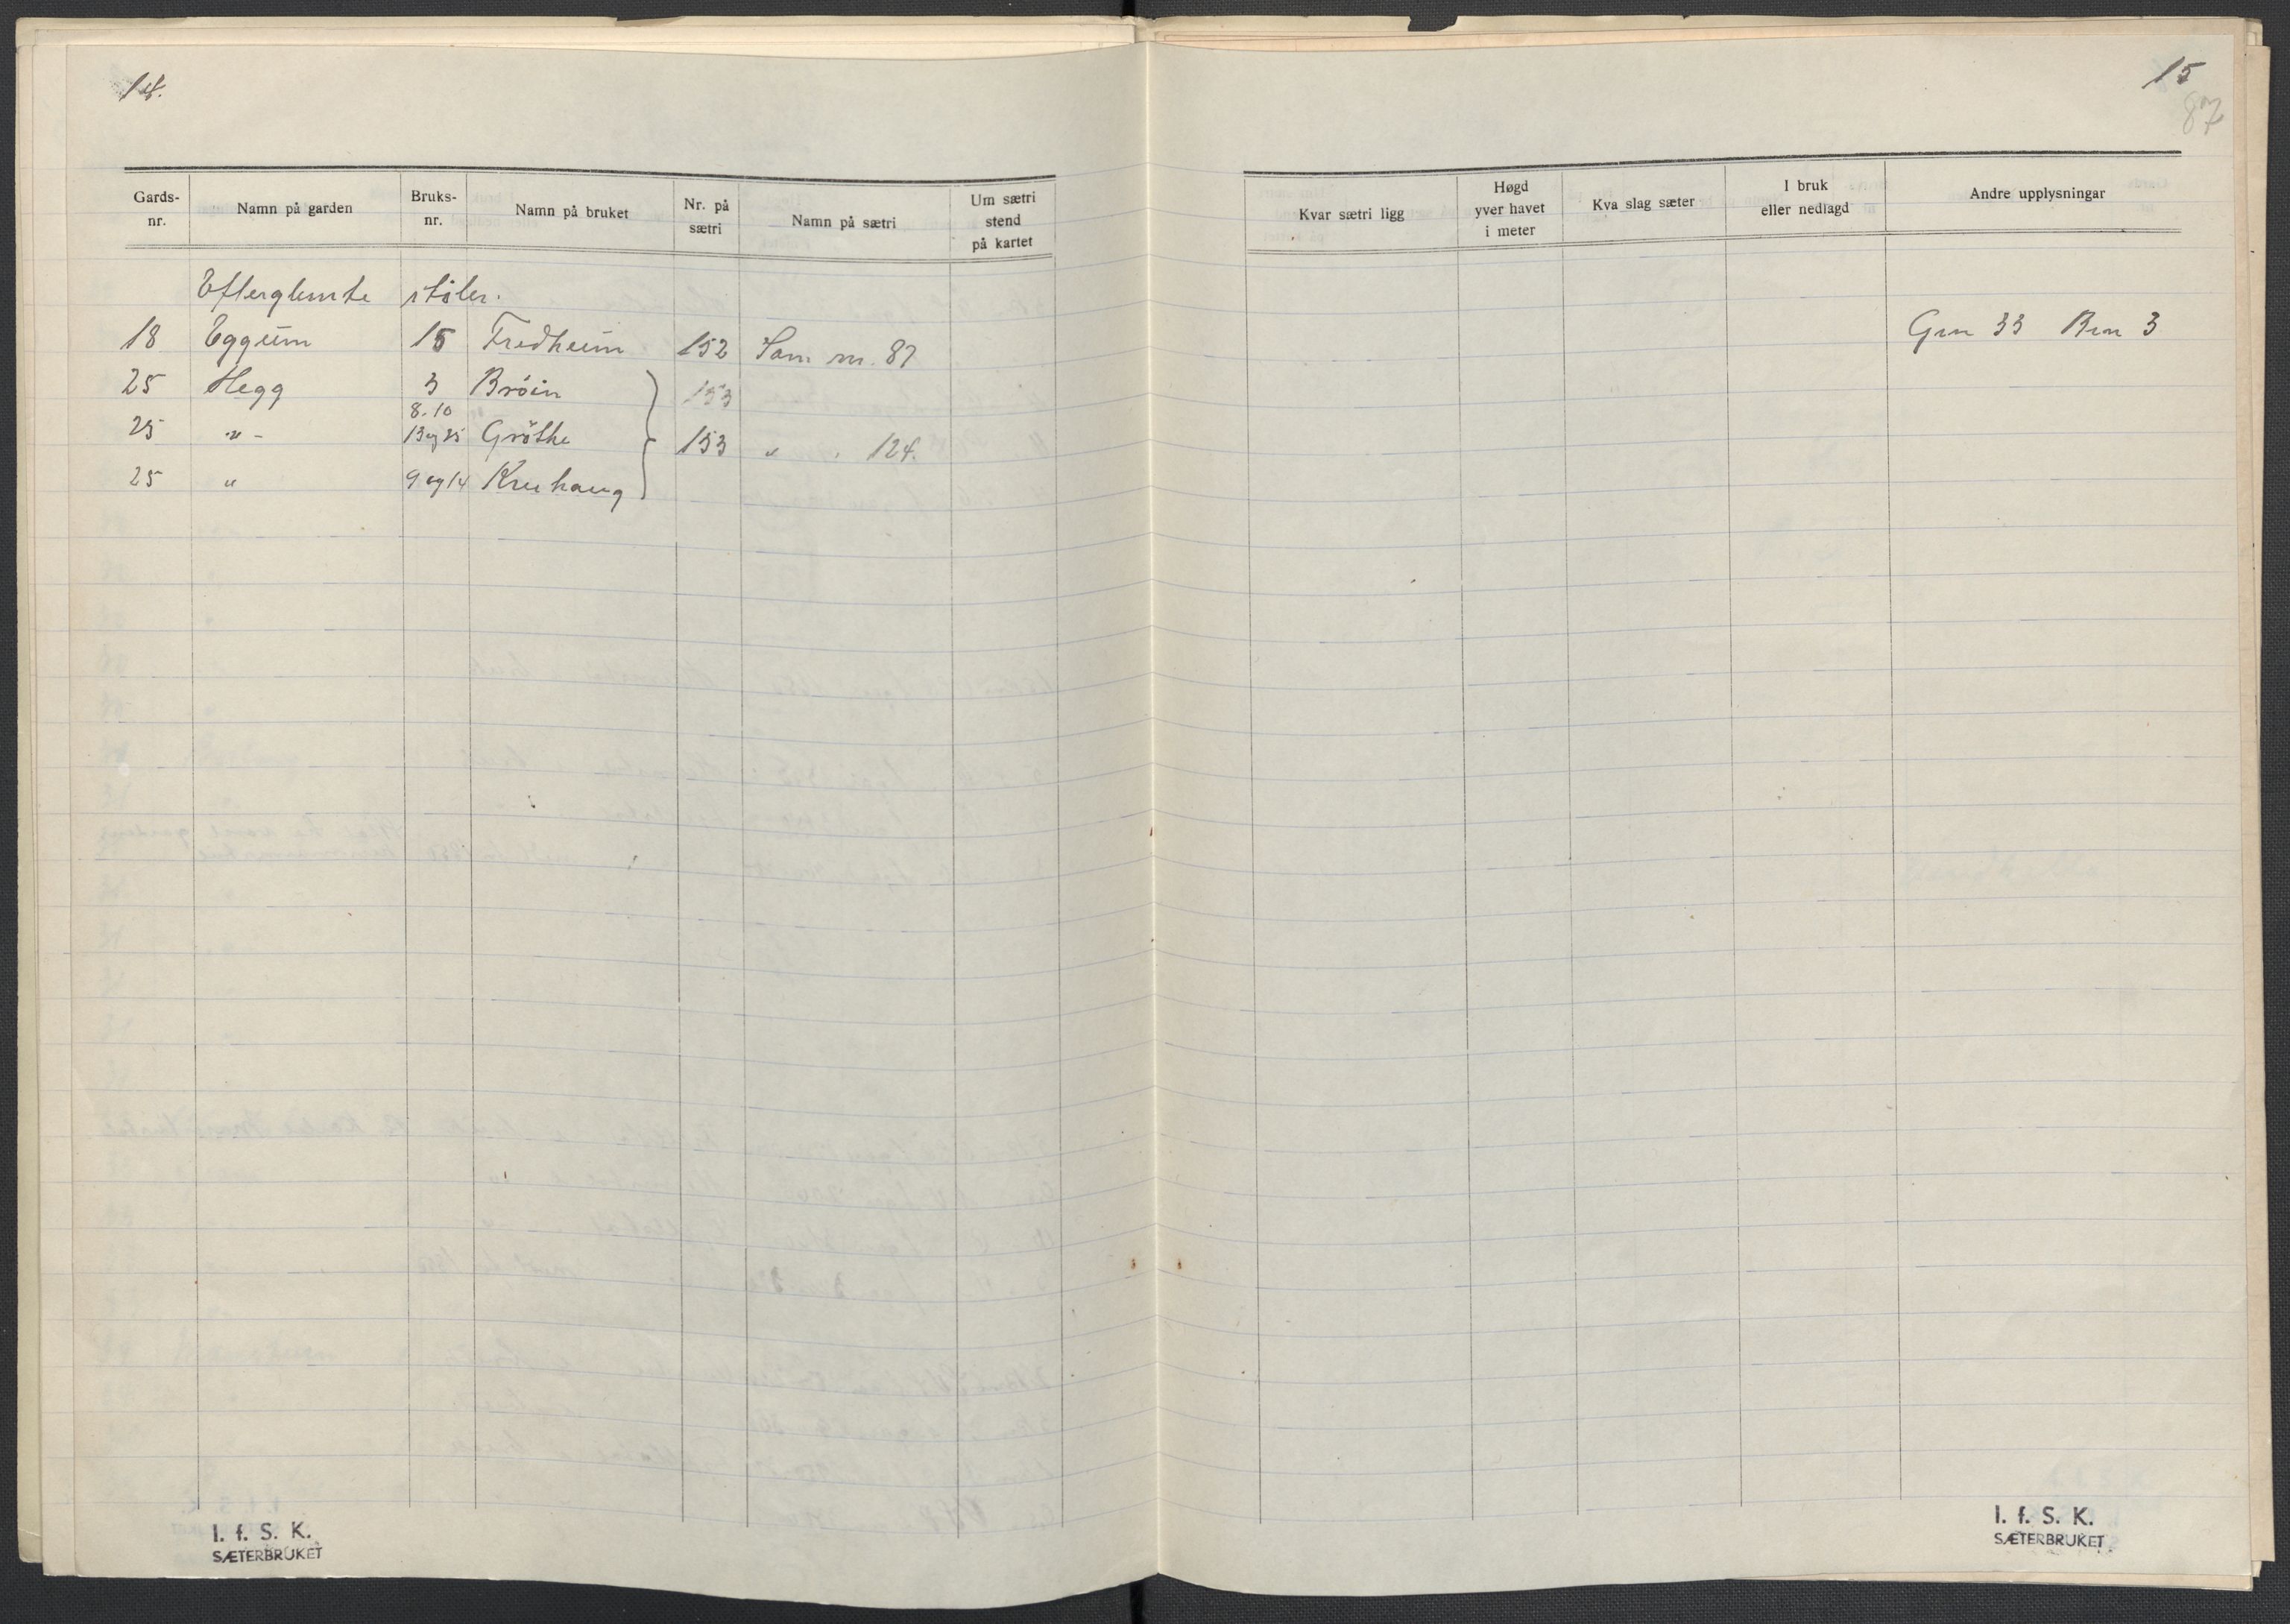 14.
Gards-nr. Namn på garden Bruks-nr. Namn på bruket Nr. på sætri Namn på sætri Um sætri stend på kartet
Efterglemte støler.
18 Eggum 15 Fredheim 152 Sam nr. 87
25 Hegg 3 Bröin 153
8. 10
25 " - 13 og 25 Gröthe 153 " . 124.
25 " 9 og 14 Kruhaug
I. f. S. K.
SÆTERBRUKET
15
87
Kvar sætri ligg Høgd yver havet i meter Kva slag sæter I bruk eller nedlagd Andre upplysningar
Grn 33 Brn 3
I. f. S. K.
SÆTERBRUKET